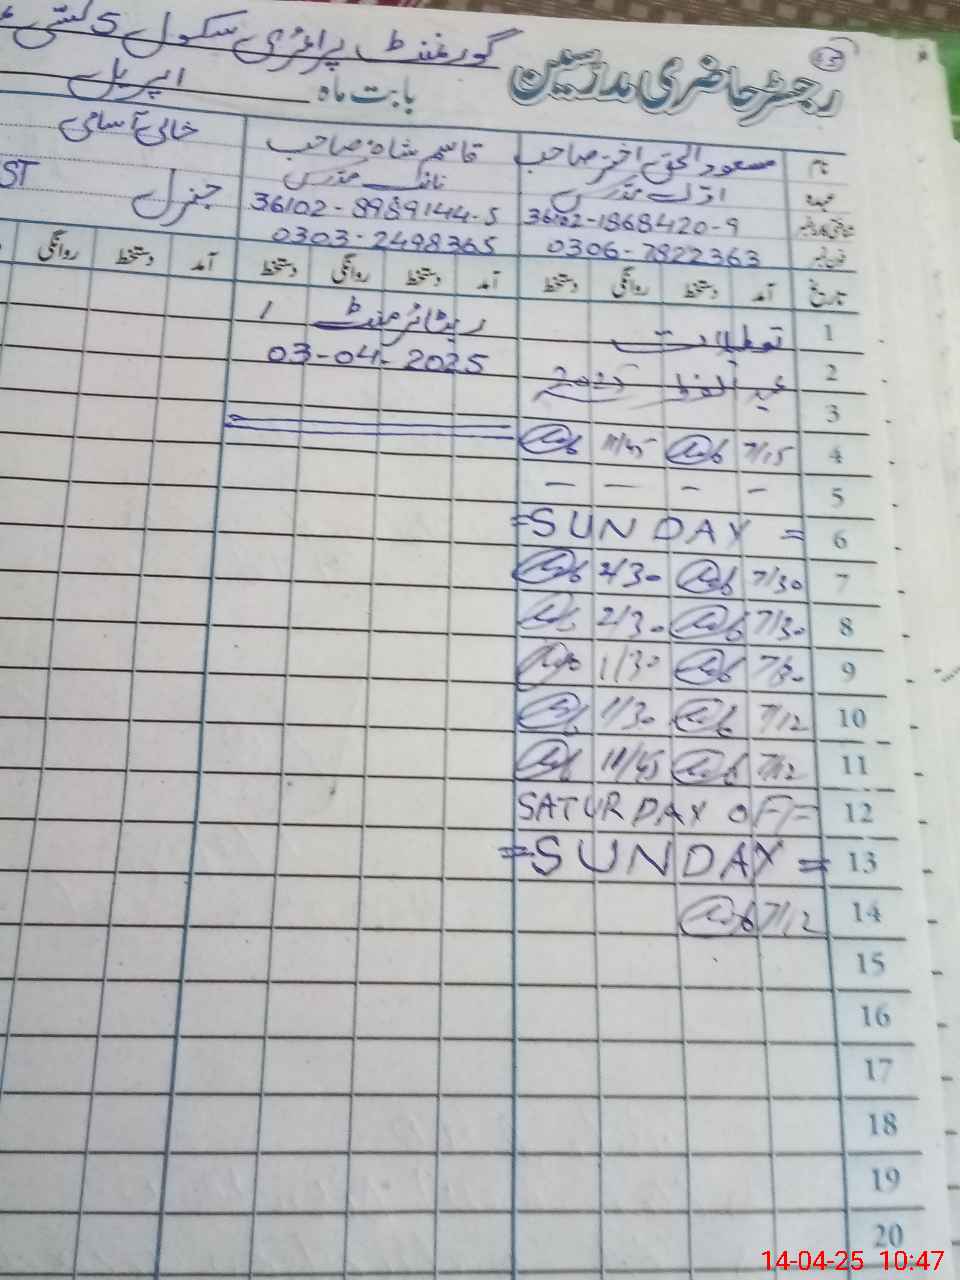 15
رجسٹر حاضری مدرسین
گورنمنٹ پرائمری سکول 5
بابت ماہ اپریل
نام مسعود الحق اختر صاحب قاسم شاہ صاحب خالی آسامی
عہدہ اول مدرس نائب مدرس جنرل ST
شناختی کارڈ نمبر 36102-1868420-9 36102-8989144-5
فون نمبر 0306-7822363 0303-2498365
تاریخ آمد دستخط روانگی دستخط آمد دستخط روانگی دستخط آمد دستخط روانگی
1 تعطیلات ریٹائرمنٹ
2 عید الفطر 2025 03-04-2025
3
4 7/15 11/45
5 - - - -
6 =SUNDAY=
7 7/30 2/30
8 7/30 2/30
9 7/30 1/30
10 7/12 1/30
11 7/12 11/45
12 SATURDAY OFF=
13 =SUNDAY=
14 7/12
15
16
17
18
19
20
14-04-25 10:47